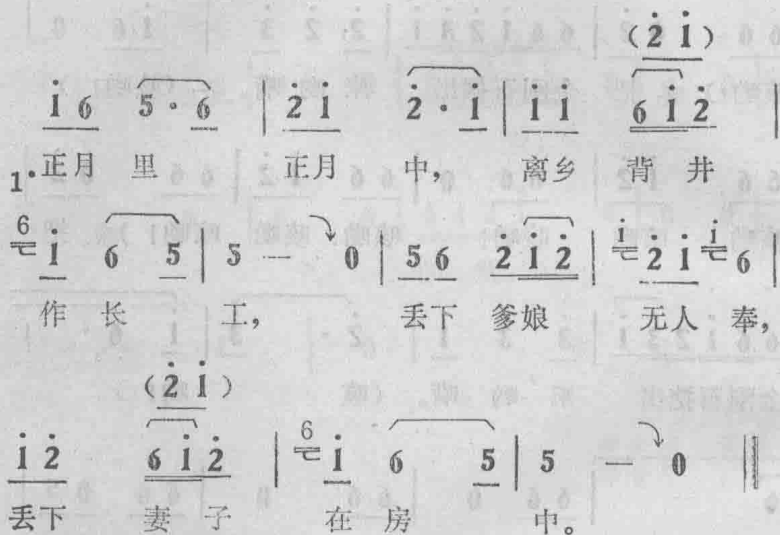 (2̇ 1̇)
1̇ 6 5·6 | 2̇ 1 2̇·1 | 1̇ 1̇ 6 1̇ 2̇ |
1.正月 里 正月 中, 离乡 背 井
6 1̇ 6 5 | 5 — 0 | 5 6 2 1̇ 2̇ | i 2̇ 1̇ i 6 |
作 长 工, 丢下 爹娘 无人 奉,
(2̇ 1̇)
1̇ 2̇ 6 1̇ 2̇ | 6 1̇ 6 5 | 5 — 0 ‖
丢下 妻 子 在 房 中。